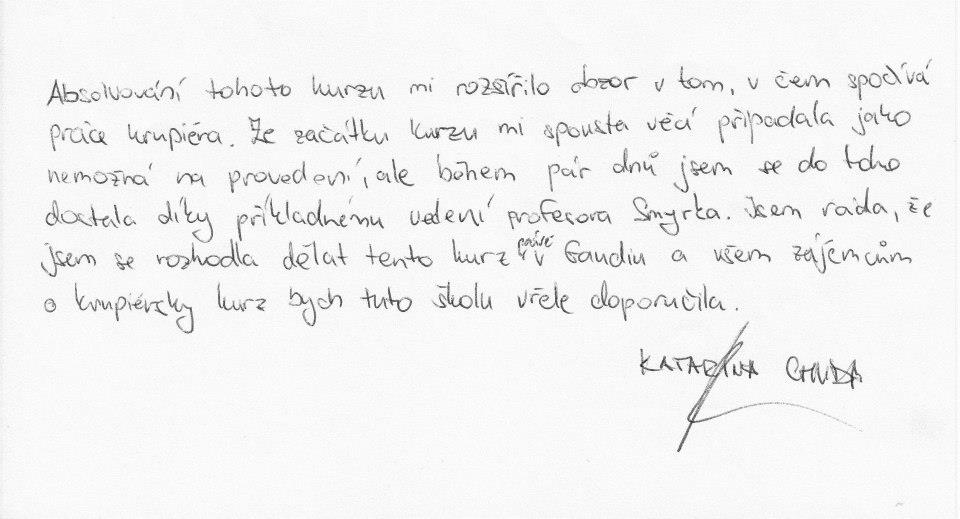 Absolvování tohoto kurzu mi rozšířilo obzor v tom, v čem spočívá
práce krupiéra. Ze začátku kurzu mi spousta věcí připadala jako
nemožná na provedení, ale během pár dnů jsem se do toho
dostala díky příkladnému vedení profesora Smyrka. Jsem ráda, že
jsem se rozhodla dělat tento kurz právě v Gaudiu a všem zájemcům
o krupiérsky kurz bych tuto školu vřele doporučila.
KATARINA CHUDA